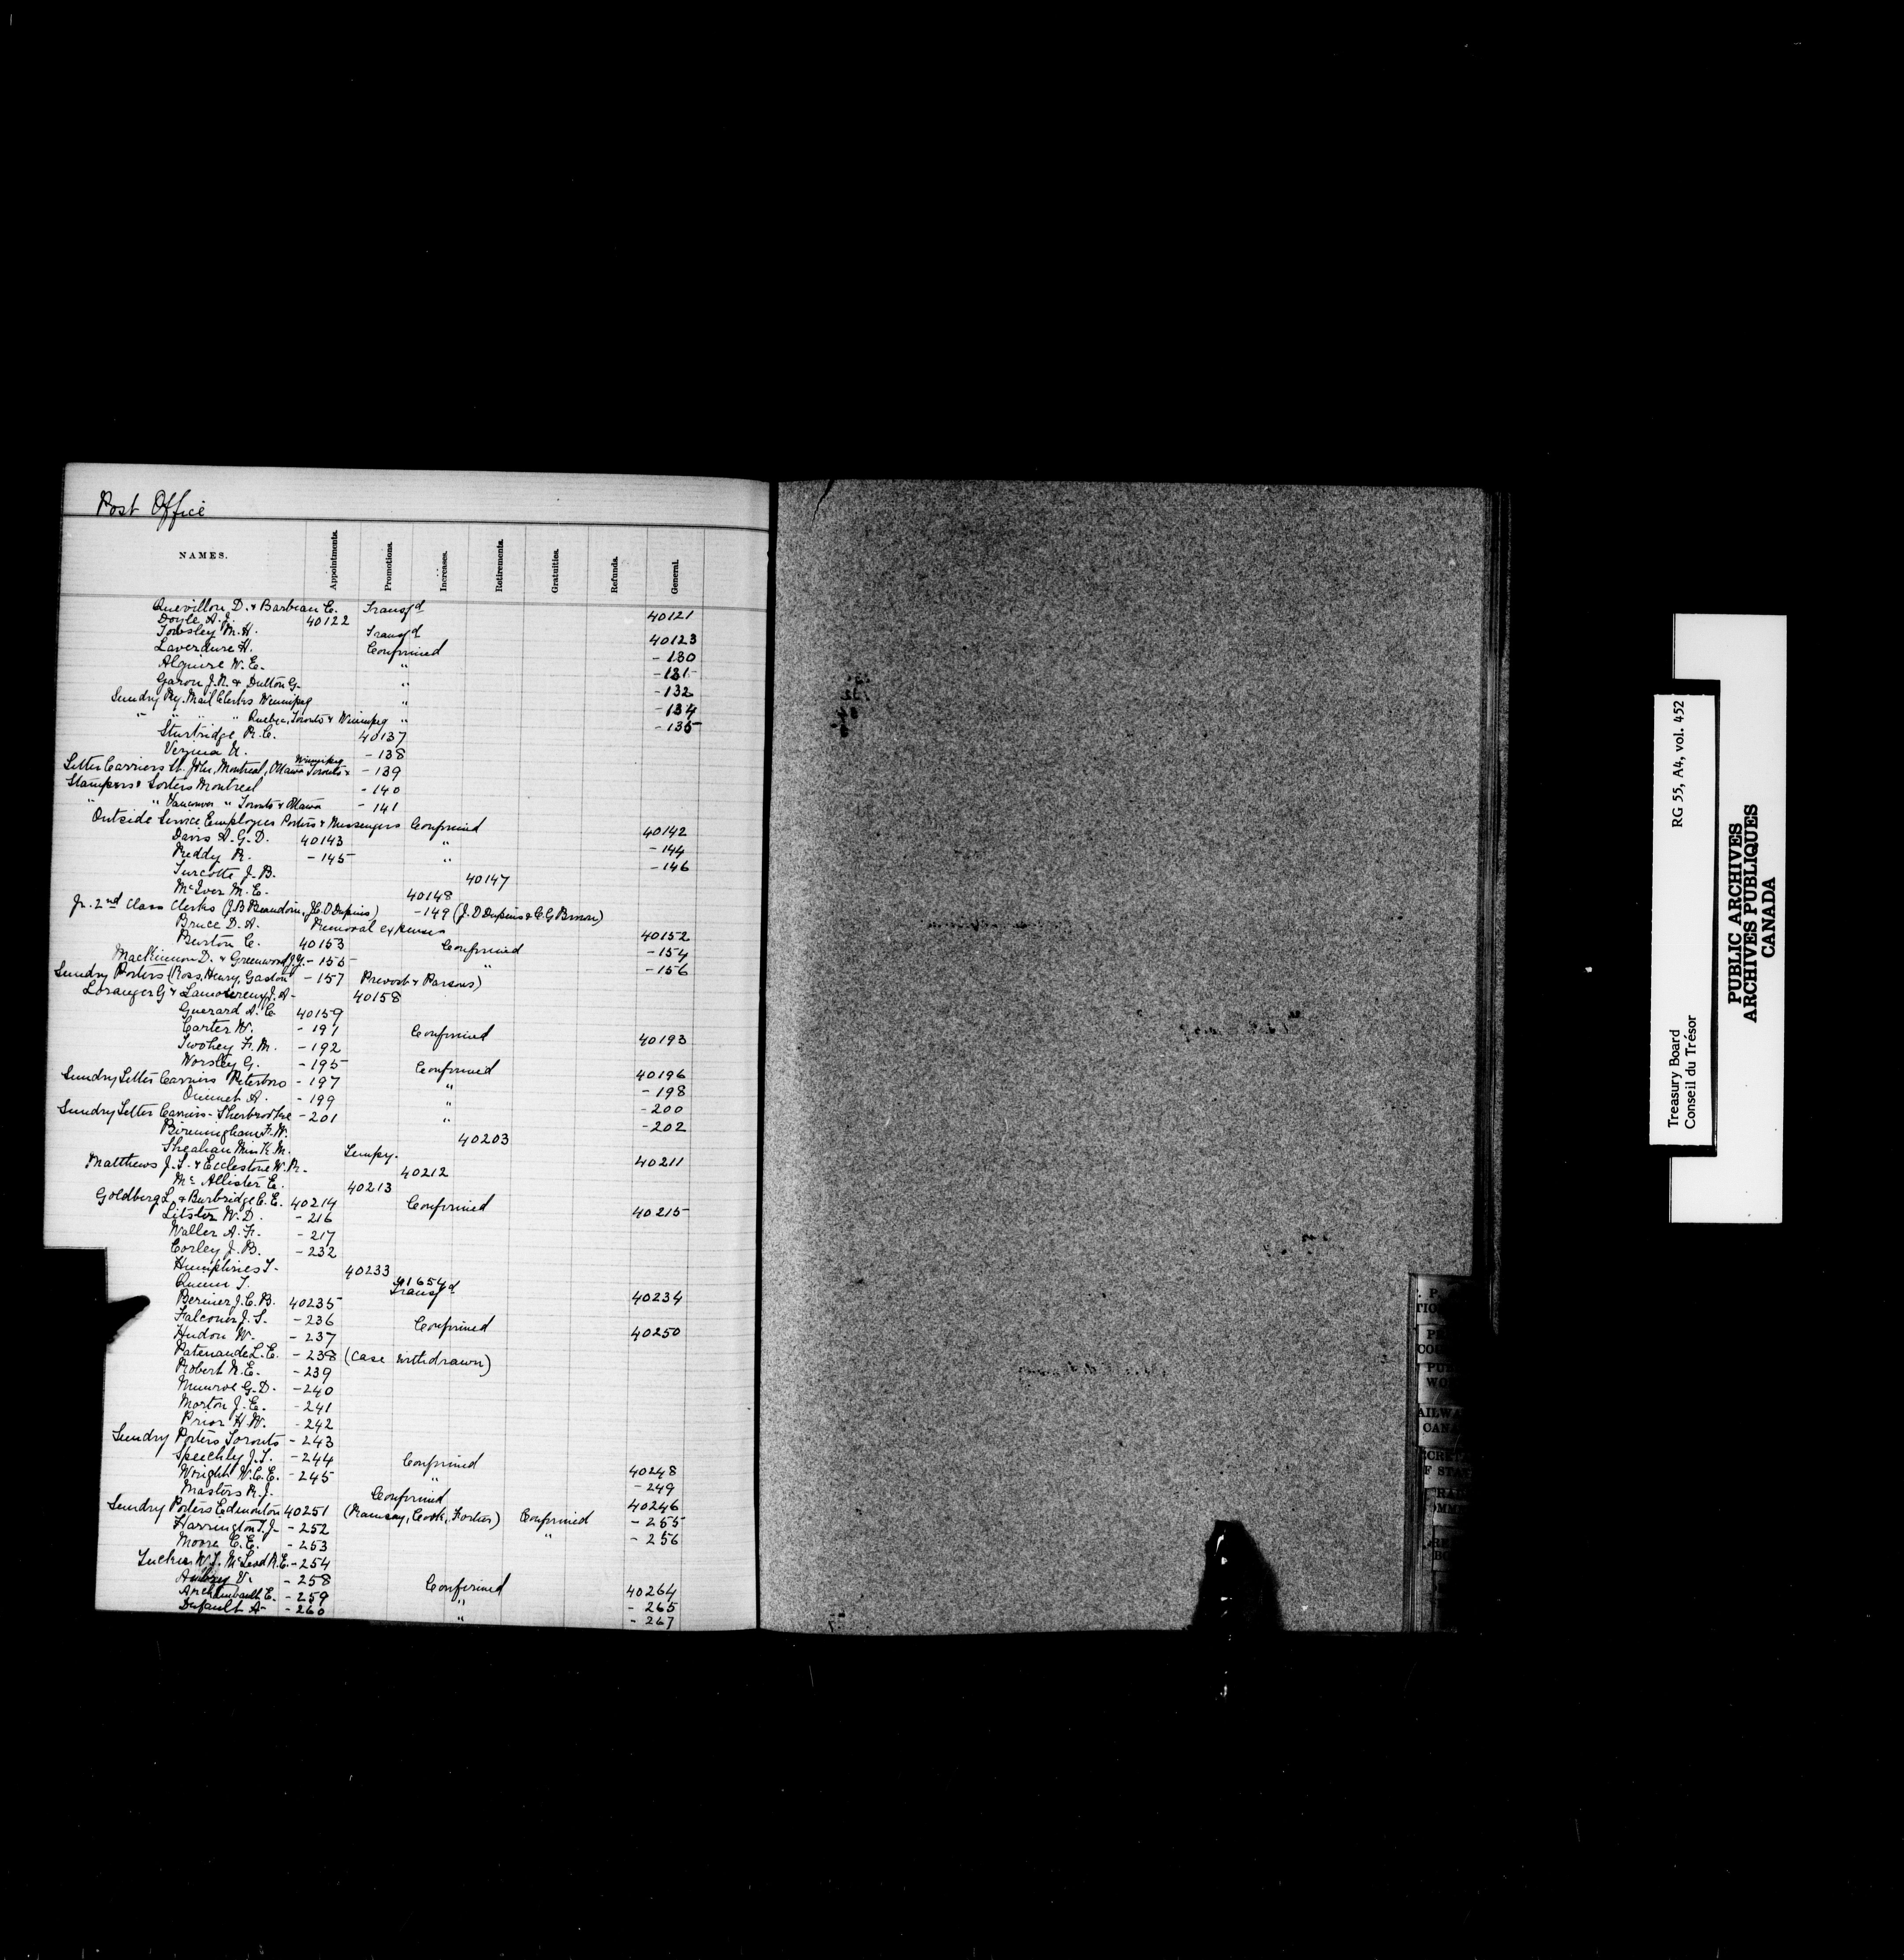 Post Office
NAMES. Appointments. Promotions. Increases. Retirements. Gratuities. Refunds. General.
Quevillon D. & Barbeau C. Transf'd 40121
Doyle A. J. 40122
Towsley M. H. Transf'd 40123
Laverdure H. Confirmed - 130
Alguire W. E. " - 131
Garon J. N. & Dutton G. " - 132
Sundry Ry. Mail Clerks Winnipeg " - 134
" " " " Quebec, Toronto & Winnipeg " - 135
Sturtridge R. C. 40137
Vezina N. - 138
Letter Carriers St. John, Montreal, Ottawa Toronto & Winnipeg - 139
Stampers & Sorters Montreal - 140
" " Vancouver " Toronto & Ottawa - 141
Outside Service Employees Porters & Messengers Confirmed 40142
Davis A. G. D. 40143 " - 144
Reddy R. - 145 " - 146
Turcotte J. B. 40147
McIver M. E. 40148
Jr. 2nd Class Clerks (J. B Beaudoin, J. C. O Dupuis) - 149 (J. O Dupuis & C. G Brown)
Bruce D. A. Removal expenses 40152
Burton C. 40153 Confirmed - 154
MacKinnon D. & Greenwood J. Y. - 155 " - 156
Sundry Porters (Ross, Henry, Gaston - 157 Prevost & Parsons)
Loranger G & Lamoureux J. A- 40158
Guerard A. C. 40159
Carter W. - 191 Confirmed 40193
Twohey F. M. - 192
Worsley G. - 195 Confirmed 40196
Sundry Letter Carriers Peterboro - 197 " - 198
Ouimet A. - 199 " - 200
Sundry Letter Carriers - Sherbrooke - 201 " - 202
Birmingham F. W. 40203
Sheahan Miss K. M. Tempy. 40211
Matthews J. S. & Ecclestone W. R. 40212
Mc Allister E. 40213
Goldberg L. & Burbridge C. E. 40214 Confirmed 40215
Litster W. D. - 216
Waller A. F. - 217
Corley J. B. - 232
Humphries T- 40233
Queen T. 41654 Transf'd 40234
Bernier J. C. B. 40235
Falconer J. S. - 236 Confirmed 40250
Hudon W. - 237
Patenaude L. E. - 238 (Case withdrawn)
Robert N. E. - 239
Munroe G. D. - 240
Morton J. E. - 241
Prior H. W. - 242
Sundry Porters Toronto - 243
Speechly J. T. - 244 Confirmed 40248
Wright W. C. E. - 245 " - 249
Masters R. J. Confirmed 40246
Sundry Porters Edmonton 40251 (Ramsay, Cook, Fortier) Confirmed - 255
Harrington T. J- - 252 " - 256
Moore C. E. - 253
Tucker W. J. McLeod R. E. - 254
Aubrey V. - 258 Confirmed 40264
Archambault E. - 259 " - 265
Dufault A- - 260 " - 267
Treasury Board RG 55, A4, vol. 452
Conseil du Trésor
PUBLIC ARCHIVES
ARCHIVES PUBLIQUES
CANADA